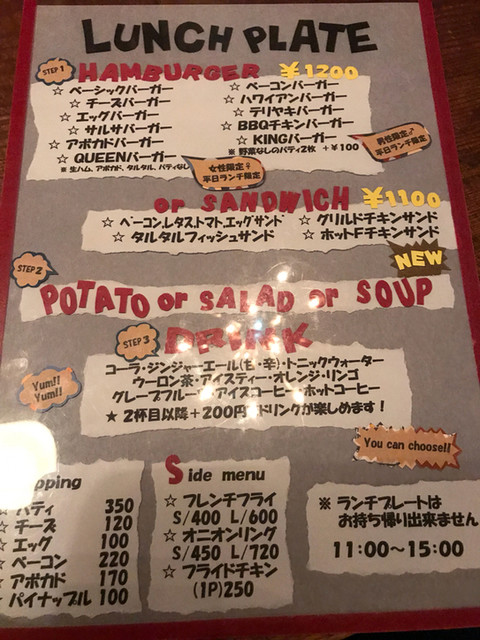 LUNCH PLATE
STEP 1
HAMBURGER ¥1200
☆ ベーシックバーガー
☆ チーズバーガー
☆ エッグバーガー
☆ サルサバーガー
☆ アボカドバーガー
☆ QUEENバーガー
※ 生ハム、アボカド、タルタル、パティなし
☆ ベーコンバーガー
☆ ハワイアンバーガー
☆ テリヤキバーガー
☆ BBQチキンバーガー
☆ KINGバーガー
※ 野菜なしのパティ2枚 +¥100
男性限定♂
平日ランチ限定
女性限定♀
平日ランチ限定
or SANDWICH ¥1100
☆ ベーコン,レタス,トマト,エッグサンド
☆ タルタルフィッシュサンド
☆ グリルドチキンサンド
☆ ホットFチキンサンド
NEW
STEP 2
POTATO or SALAD or SOUP
STEP 3
DRINK
コーラ・ジンジャーエール(甘・辛)・トニックウォーター
ウーロン茶・アイスティー・オレンジ・リンゴ
グレープフルーツ・アイスコーヒー・ホットコーヒー
★ 2杯目以降+200円 ドリンクが楽しめます!
Yum!!
Yum!!
You can choose!!
pping
パティ 350
☆ チーズ 120
☆ エッグ 100
☆ ベーコン 220
☆ アボカド 170
☆ パイナップル 100
Side menu
☆ フレンチフライ
S/400 L/600
☆ オニオンリング
S/450 L/720
☆ フライドチキン
(1P)250
※ ランチプレートは
お持ち帰り出来ません
11:00〜15:00